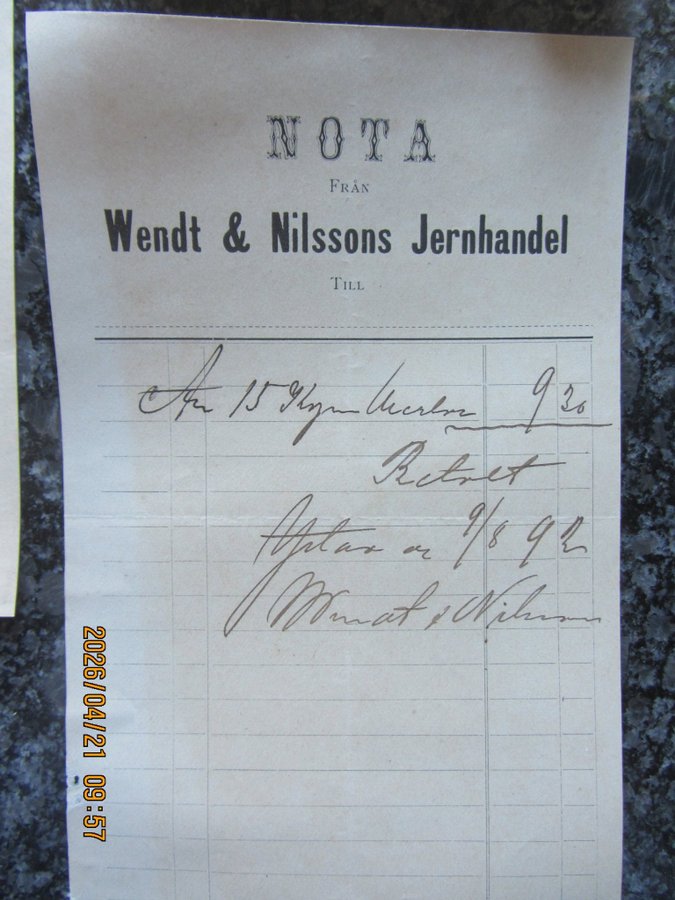 NOTA
FRÅN
Wendt & Nilssons Jernhandel
TILL
An 15 9 30
Betalt
Ystad 9/8 92
Wendt & Nilsson
2026/04/21 09:57